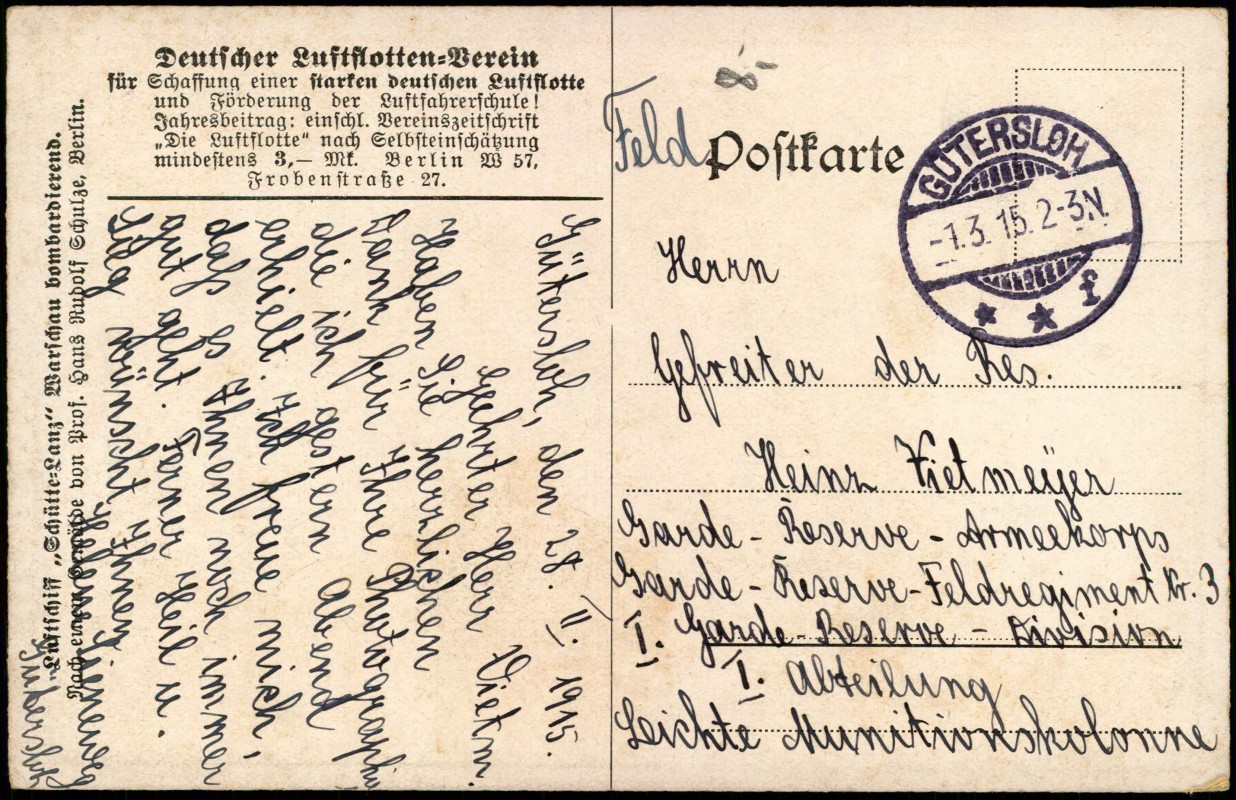 Deutscher Luftflotten-Verein
für Schaffung einer starken deutschen Luftflotte
und Förderung der Luftfahrerschule!
Jahresbeitrag: einschl. Vereinszeitschrift
„Die Luftflotte" nach Selbsteinschätzung
mindestens 3,— Mk. Berlin W 57,
Frobenstraße 27.
Luftschiff „Schütte-Lanz" Warschau bombardierend.
Nach einem Gemälde von Prof. Hans Rudolf Schulze, Berlin.
Gütersloh, den 28. II. 1915.
Geehrter Herr Vietm.
Haben Sie herzlichen
Dank für Ihre Photographie
die ich gestern Abend
erhielt. Ich freue mich,
dass es Ihnen noch immer
gut geht. Ferner Heil u.
Sieg wünscht Ihnen
8.-
Feld
Postkarte
GÜTERSLOH
-1.3.15.2-3N.
* * f
Herrn
Gefreiter der Res.
Heinz Vietmeÿer
Garde-Reserve-Armeekorps
Garde-Reserve-Feldregiment Nr. 3
I. Garde-Reserve-Division
I. Abteilung
Leichte Munitionskolonne